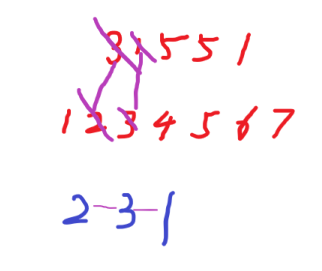 3 1 5 5 1
1 2 3 4 5 6 7
2-3-1